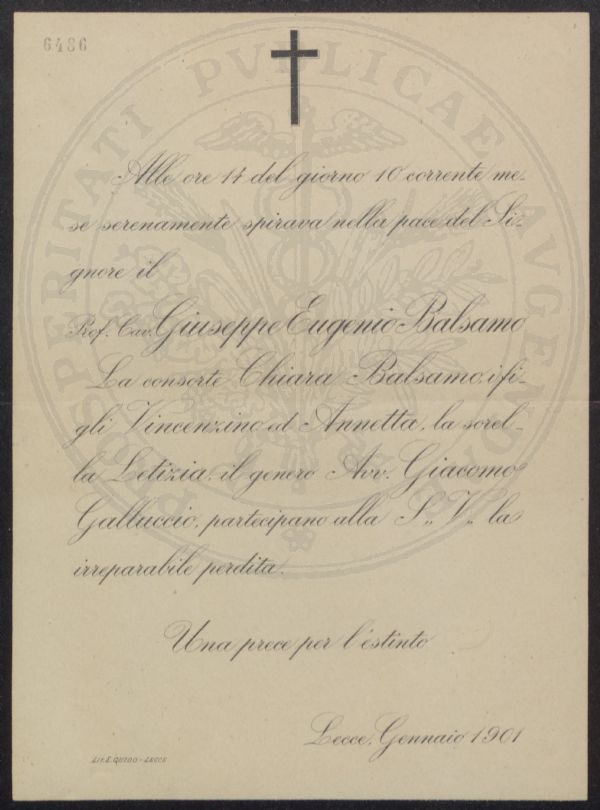 6486
PROSPERITATI PVBLICAE AVGENDAE
Alle ore 14 del giorno 10 corrente me-
se serenamente spirava nella pace del Si-
gnore il
Prof. Cav. Giuseppe Eugenio Balsamo
La consorte Chiara Balsamo, i fi-
gli Vincenzino ed Annetta, la sorel-
la Letizia, il genero Avv. Giacomo
Galluccio, partecipano alla S„ V„ la
irreparabile perdita.
Una prece per l'estinto
Lecce, Gennaio 1901
LIT. E. GUIDO - LECCE